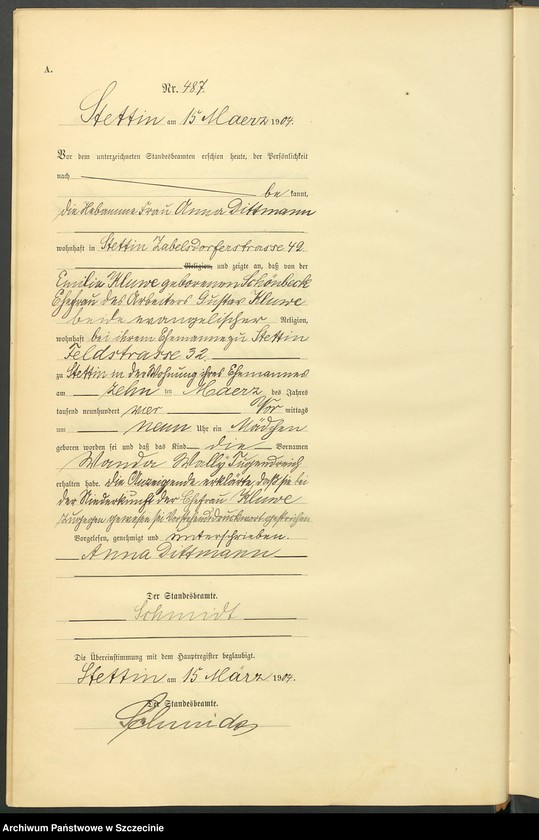 A.
Nr. 487.
Stettin am 15 Maerz 1904.
Vor dem unterzeichneten Standesbeamten erschien heute, der Persönlichkeit
nach
be kannt,
die Hebamme Frau Anna Dittmann
wohnhaft in Stettin Zabelsdorferstrasse 49.
Religion, und zeigte an, daß von der
Emilie Kluwe geborenen Schönbeck
Ehefrau des Arbeiters Gustav Kluwe
beide evangelischer Religion,
wohnhaft bei ihrem Ehemanne zu Stettin
Feldstrasse 32.
zu Stettin in der Wohnung ihres Ehemannes
am zehn ten Maerz des Jahres
tausend neunhundert vier Vor mittags
um neun Uhr ein Mädchen
geboren worden sei und daß das Kind die Vornamen
Wanda Wally
erhalten habe. Die Anzeigende erklärte, daß sie bei
der Niederkunft der Ehefrau Kluwe
zugegen gewesen sei Vorstehend Druckwort gestrichen
Vorgelesen, genehmigt und unterschrieben.
Anna Dittmann
Der Standesbeamte.
Schmidt
Die Übereinstimmung mit dem Hauptregister beglaubigt.
Stettin am 15 März 1904.
Der Standesbeamte.
Archiwum Państwowe w Szczecinie